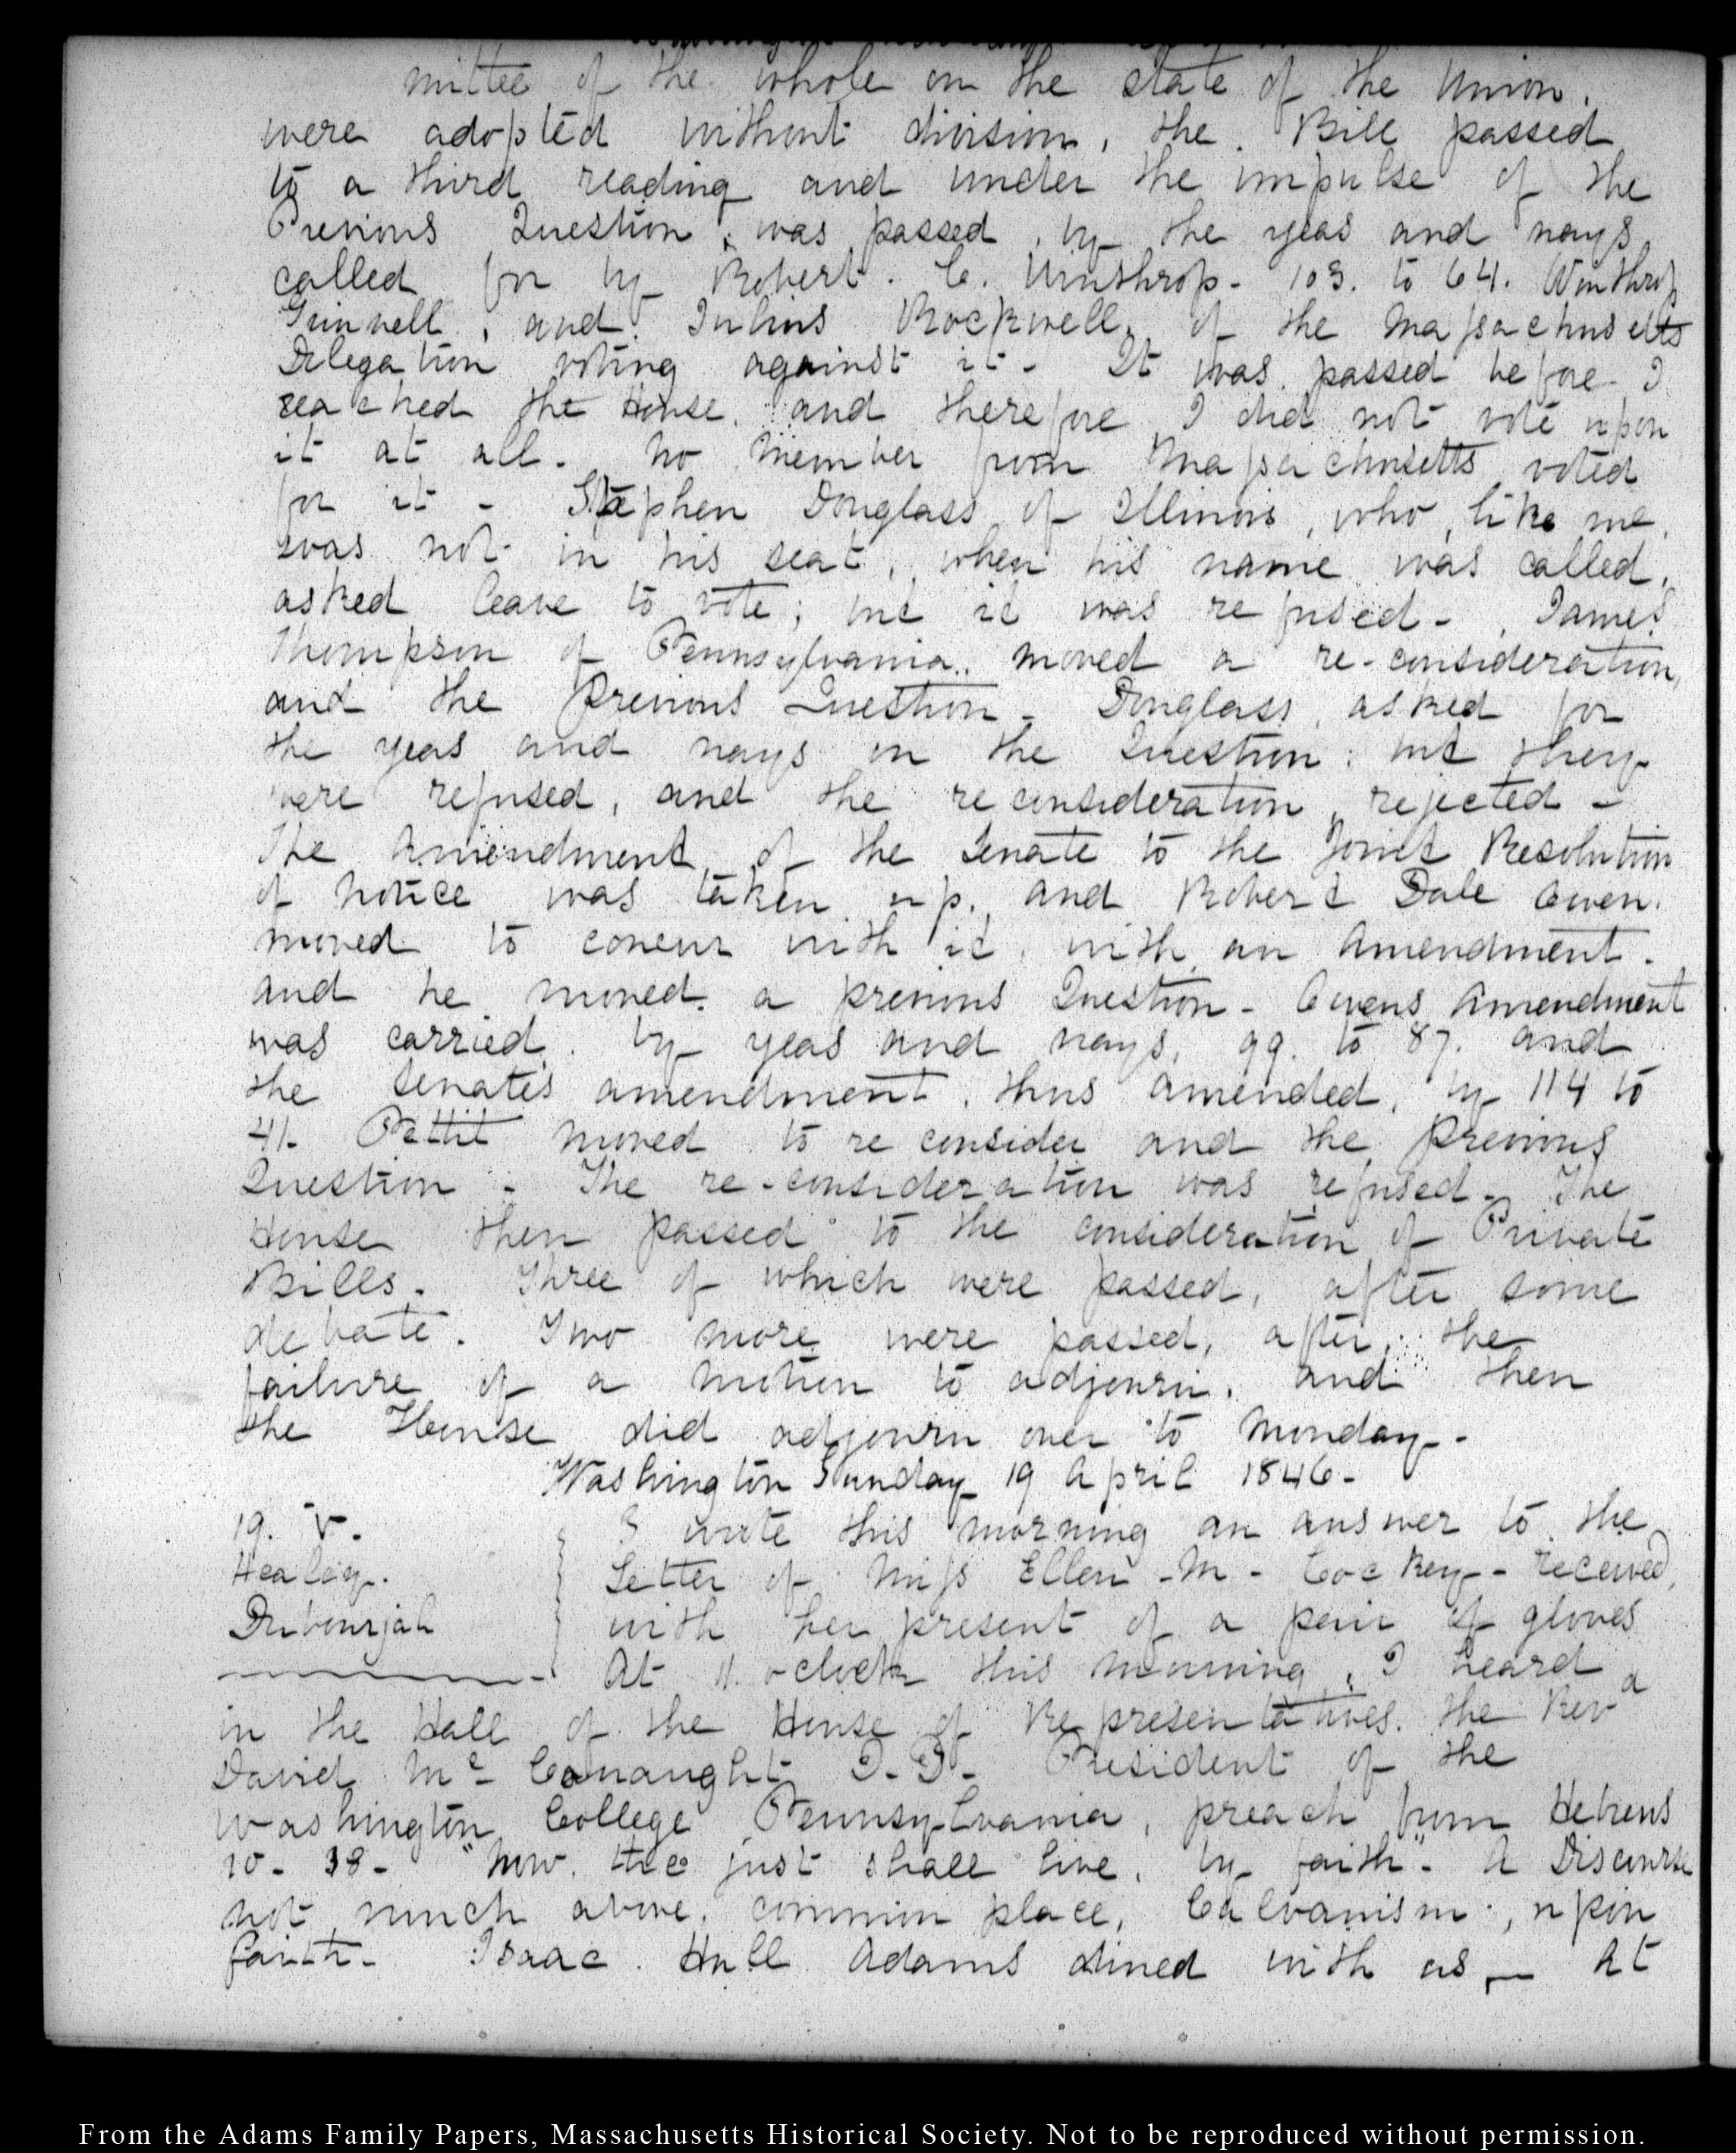 mittee of the whole on the state of the Union.
were adopted without division, the Bill passed
to a third reading and under the impulse of the
Previous Question, was passed, by the yeas and nays
called for by Robert. C. Winthrop - 103. to 64. Winthrop
Grinnell, and Julius Rockwell, of the Massachusetts
Delegation voting against it - It was passed before I
reached the House, and therefore I did not vote upon
it at all. No Member from Massachusetts voted
for it - Stephen Douglass of Illinois, who, like me,
was not in his seat, when his name was called,
asked leave to vote; but it was refused - James
Thompson of Pennsylvania moved a re-consideration,
and the Previous Question - Douglass, asked for
the yeas and nays on the Question: but they
were refused, and the reconsideration, rejected -
The Amendment of the Senate to the Joint Resolution
of notice was taken up, and Robert Dale Owen.
moved to concur with it, with an Amendment.
and he moved a previous Question - Owens Amendment
was carried. by yeas and nays, 99. to 87. and
the Senate's amendment, thus amended, by 114 to
41. Pettit moved to reconsider and the Previous
Question - The re-consideration was refused. The
House then passed to the consideration of Private
Bills. Three of which were passed, after some
debate. Two more were passed, after the
failure of a motion to adjourn, and then
the House did adjourn over to Monday.
Washington Sunday 19 April 1846 -
19. V. I wrote this morning an answer to the
Healey. Letter of Miss Ellen - M - Cockey - received,
Dubourjal with her present of a pair of gloves
At 11. o clock this morning, I heard
in the Hall of the House of Representatives. the Revd
David Mc Conaught D.D. President of the
Washington College Pennsylvania, preach from Hebrews
10 - 38 - "Now the just shall live, by faith". A Discourse
not much above, common place, Calvanism, upon
faith - Isaac Hull Adams dined with us - At
From the Adams Family Papers, Massachusetts Historical Society. Not to be reproduced without permission.